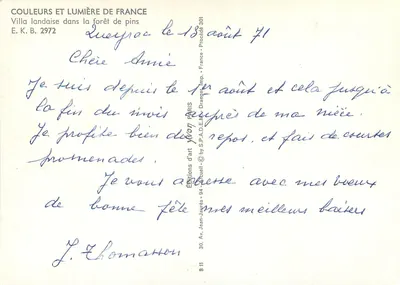 COULEURS ET LUMIÈRE DE FRANCE
Villa landaise dans la forêt de pins
E. K. B. 2972
Queyrac le 13 août 71
Chère Annie
Je suis depuis le 1er août et cela jusqu'à
la fin du mois auprès de ma nièce.
Je profite bien du repos, et fais de courtes
promenades.
Je vous adresse avec mes voeux
de bonne fête mes meilleurs baisers
J. Thomasson
Editions d'art yvon
30, Av. Jean-Jaurès - 94
© by S.P.A.D.E.M.
France - Procédé 301
B 15